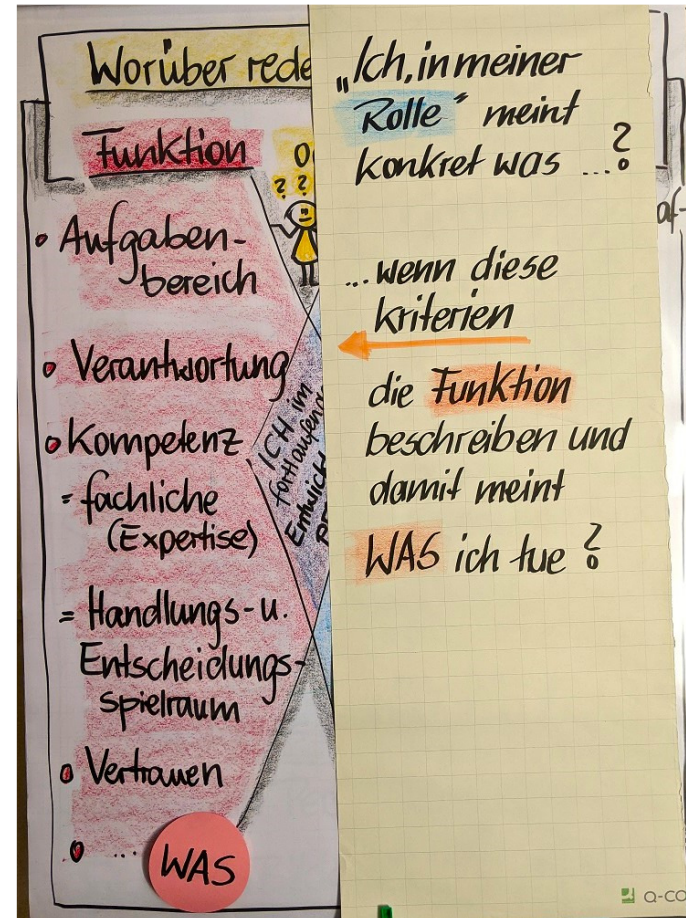 Worüber rede
Funktion
? ?
• Aufgaben-
bereich
• Verantwortung
• Kompetenz
= fachliche
(Expertise)
= Handlungs- u.
Entscheidungs-
spielraum
• Vertrauen
• ...
WAS
ICH im
fortlaufend
Entwick
„Ich, in meiner
Rolle“ meint
konkret was ...?
...wenn diese
Kriterien
die Funktion
beschreiben und
damit meint
WAS ich tue?
af-
Q-CO